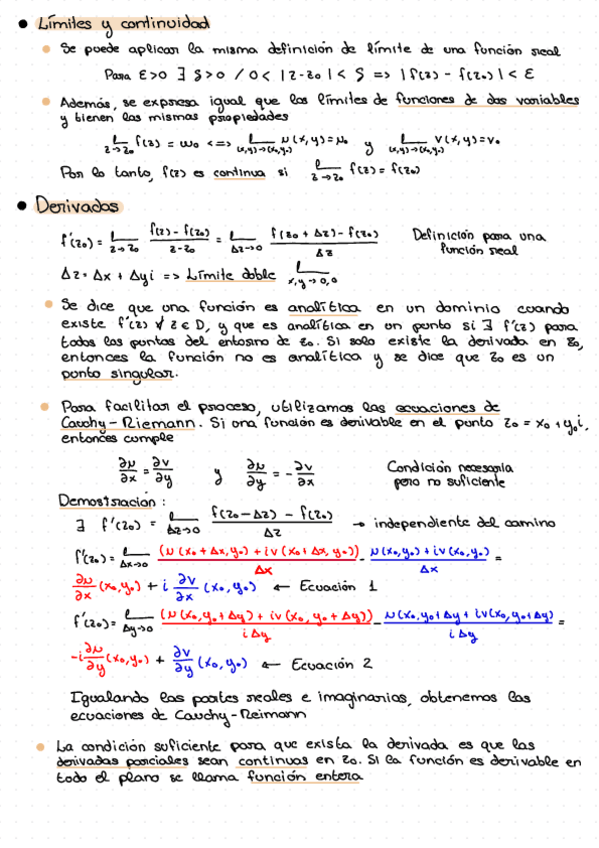 Límites y continuidad
Se puede aplicar la misma definición de límite de una función real
Para ε>0 ∃ δ>0 / 0< |z-z₀| < δ => |f(z) - f(z₀)| < ε
Además, se expresa igual que los límites de funciones de dos variables
y tienen las mismas propiedades
L z→z₀ f(z) = w₀ <=> L (x,y)→(x₀,y₀) u(x,y)=u₀ y L (x,y)→(x₀,y₀) v(x,y)=v₀
Por lo tanto, f(z) es continua si L z→z₀ f(z) = f(z₀)
Derivadas
f'(z₀) = L z→z₀ (f(z) - f(z₀))/(z-z₀) = L Δz→0 (f(z₀ + Δz) - f(z₀))/Δz Definición para una
función real
Δz = Δx + Δyi => Límite doble L x,y→0,0
Se dice que una función es analítica en un dominio cuando
existe f'(z) ∀ z ∈ D, y que es analítica en un punto si ∃ f'(z) para
todos los puntos del entorno de z₀. Si solo existe la derivada en z₀,
entonces la función no es analítica y se dice que z₀ es un
punto singular.
Para facilitar el proceso, utilizamos las ecuaciones de
Cauchy-Riemann. Si una función es derivable en el punto z₀ = x₀ + y₀i,
entonces cumple
∂u/∂x = ∂v/∂y y ∂u/∂y = -∂v/∂x Condición necesaria
pero no suficiente
Demostración :
∃ f'(z₀) = L Δz→0 (f(z₀-Δz) - f(z₀))/Δz → independiente del camino
f'(z₀) = L Δx→0 (u(x₀+Δx,y₀) + iv(x₀+Δx,y₀))/Δx - (u(x₀,y₀) + iv(x₀,y₀))/Δx =
∂u/∂x (x₀,y₀) + i ∂v/∂x (x₀,y₀) ← Ecuación 1
f'(z₀) = L Δy→0 (u(x₀,y₀+Δy) + iv(x₀,y₀+Δy))/iΔy - (u(x₀,y₀+Δy + iv(x₀,y₀+Δy)/iΔy =
-i ∂u/∂y (x₀,y₀) + ∂v/∂y (x₀,y₀) ← Ecuación 2
Igualando las partes reales e imaginarias, obtenemos las
ecuaciones de Cauchy-Reimann
La condición suficiente para que exista la derivada es que las
derivadas parciales sean continuas en z₀. Si la función es derivable en
todo el plano se llama función entera